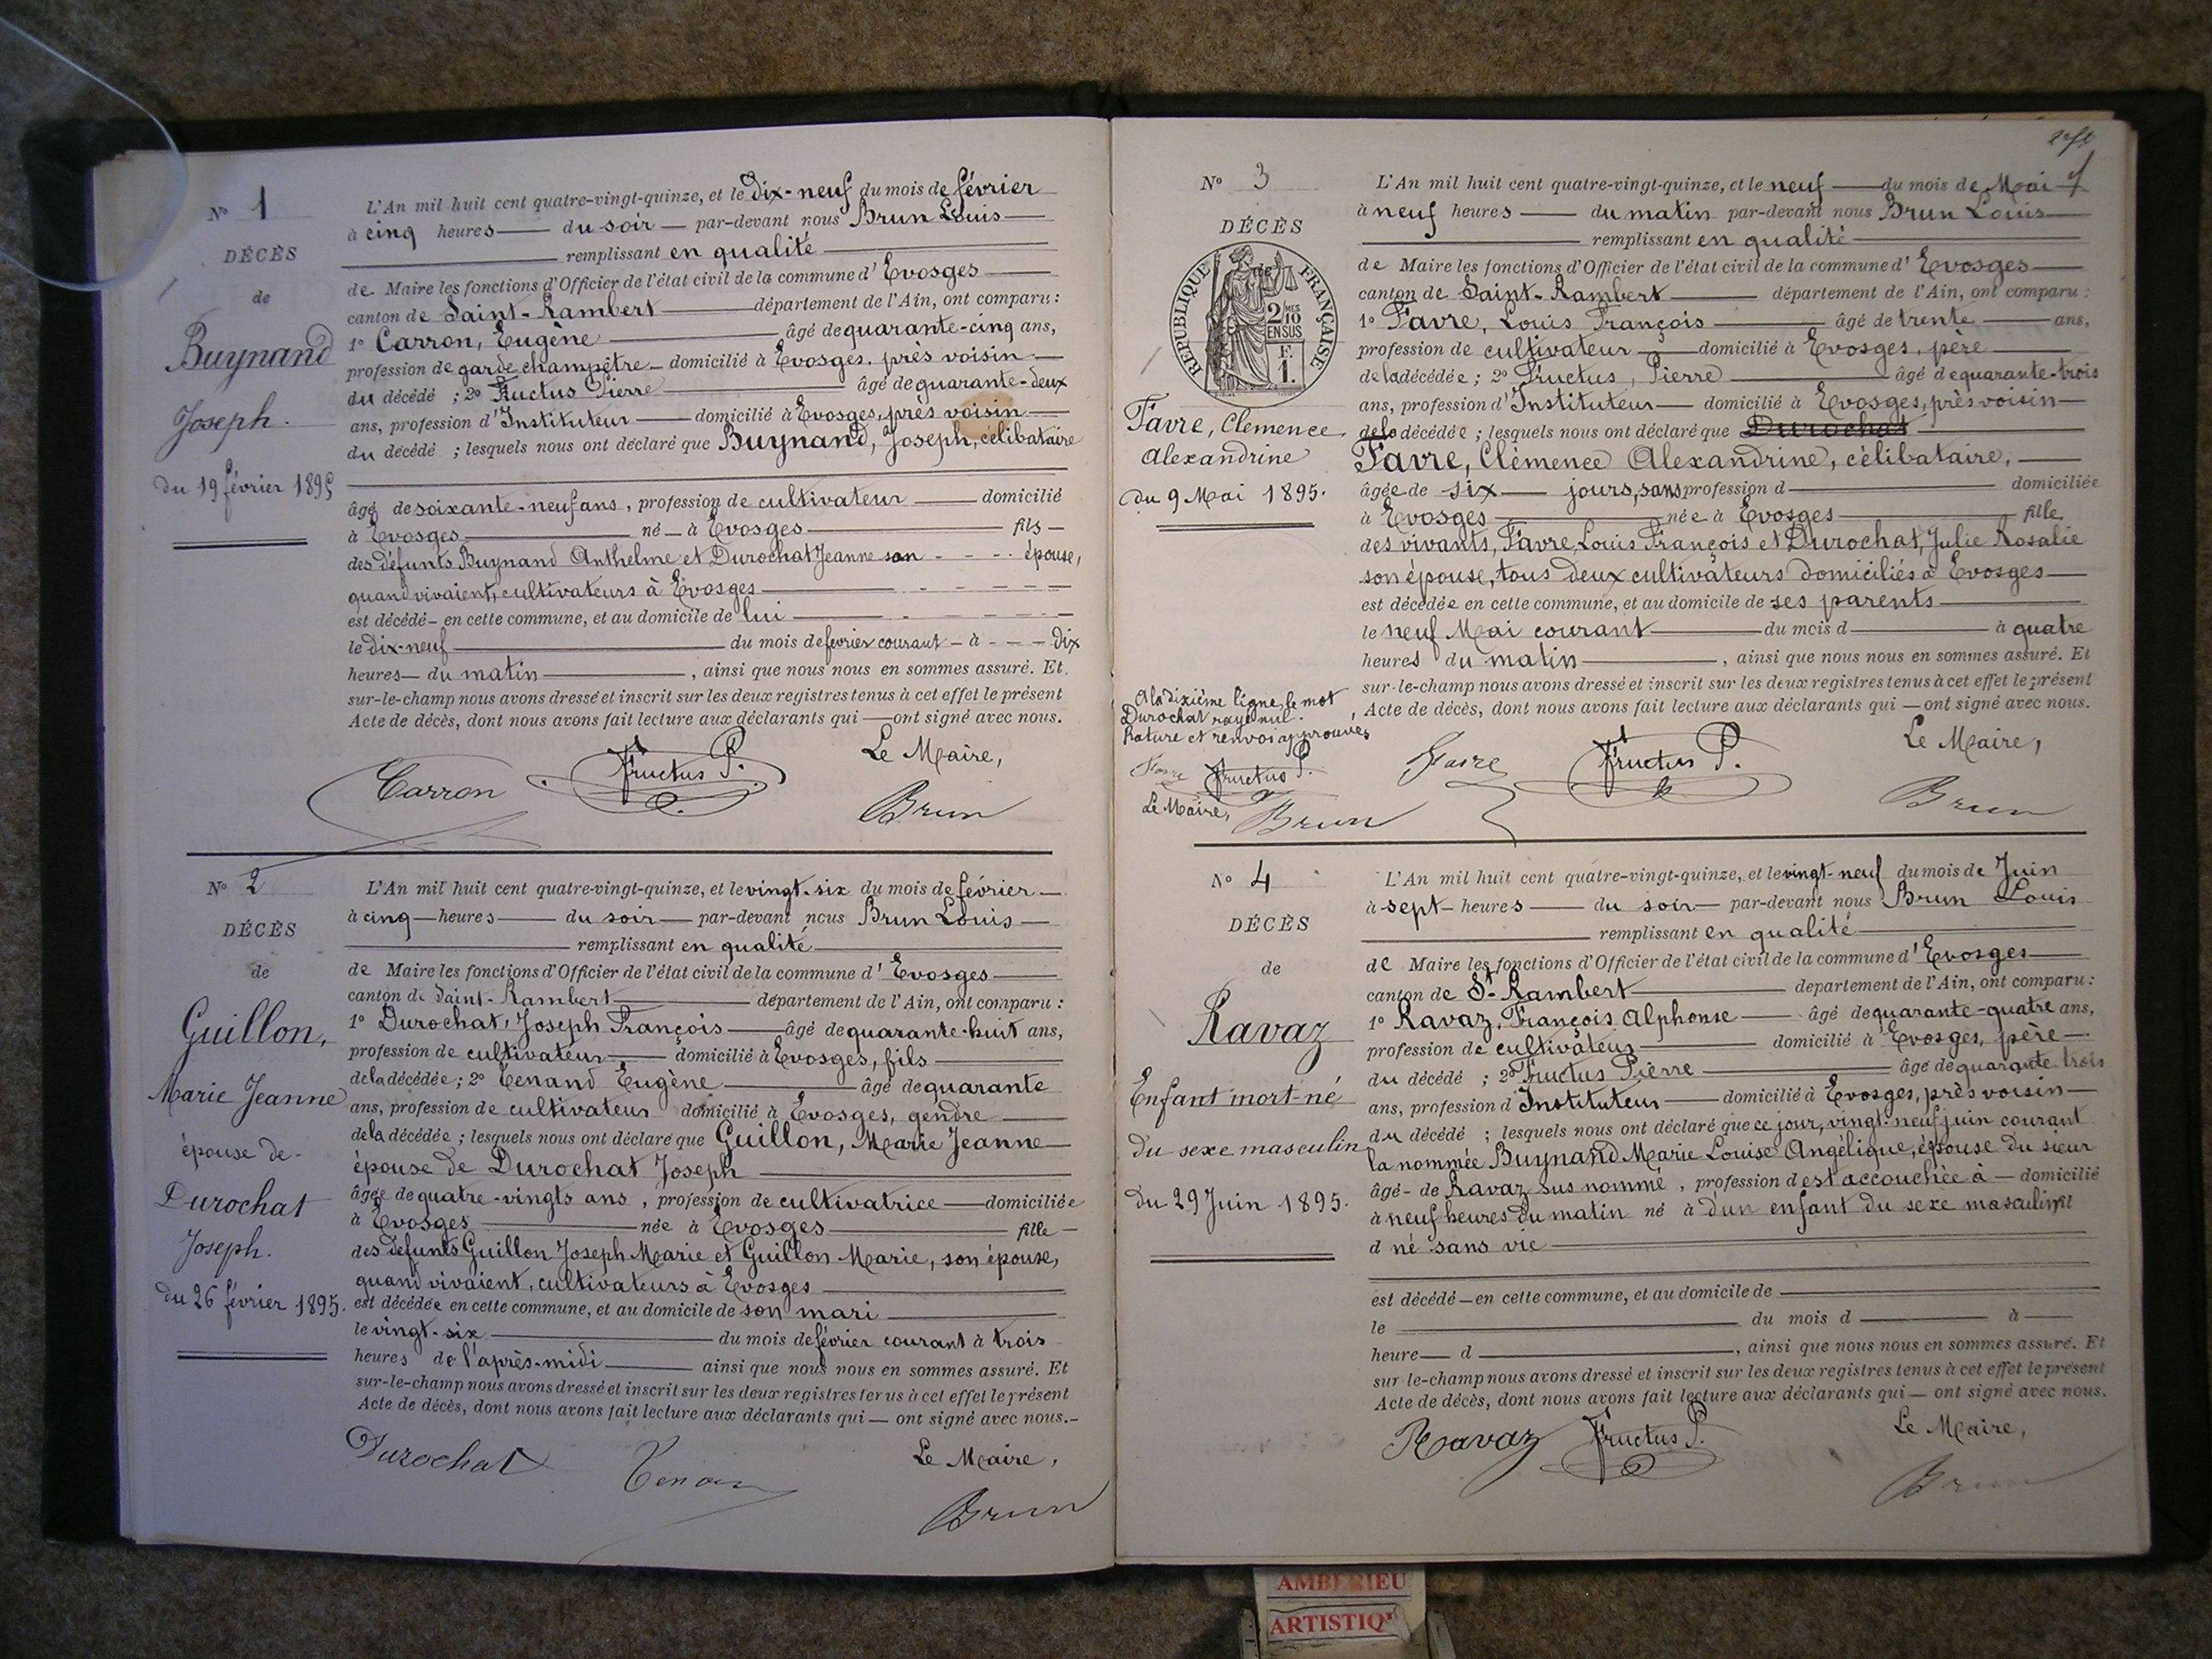 N° 1
DÉCÈS
de
Buynand
Joseph.
du 19 février 1895
L'An mil huit cent quatre-vingt-quinze, et le dix-neuf du mois de février
à cinq heures du soir par-devant nous Brun Louis
remplissant en qualité
de Maire les fonctions d'Officier de l'état civil de la commune d'Evosges
canton de Saint-Rambert département de l'Ain, ont comparu :
1° Carron, Eugène âgé de quarante-cinq ans,
profession de garde champêtre domicilié à Evosges, près voisin
du décédé ; 2° Fructus Pierre âgé de quarante-deux
ans, profession d'Instituteur domicilié à Evosges, près voisin
du décédé ; lesquels nous ont déclaré que Buynand, Joseph, célibataire
âgé de soixante-neuf ans, profession de cultivateur domicilié
à Evosges né à Evosges fils
des défunts Buynand Anthelme et Durochat Jeanne son épouse,
quand vivaient, cultivateurs à Evosges
est décédé en cette commune, et au domicile de lui
le dix-neuf du mois de février courant à dix
heures du matin, ainsi que nous nous en sommes assuré. Et
sur-le-champ nous avons dressé et inscrit sur les deux registres tenus à cet effet le présent
Acte de décès, dont nous avons fait lecture aux déclarants qui ont signé avec nous.
Le Maire,
Carron Fructus P. Brun
N° 2
DÉCÈS
de
Guillon,
Marie Jeanne
épouse de
Durochat
Joseph.
du 26 février 1895.
L'An mil huit cent quatre-vingt-quinze, et le vingt-six du mois de février
à cinq heures du soir par-devant nous Brun Louis
remplissant en qualité
de Maire les fonctions d'Officier de l'état civil de la commune d'Evosges
canton de Saint-Rambert département de l'Ain, ont comparu :
1° Durochat, Joseph François âgé de quarante-huit ans,
profession de cultivateur, domicilié à Evosges, fils
de la décédée ; 2° Tenand Eugène âgé de quarante
ans, profession de cultivateur domicilié à Evosges, gendre
de la décédée ; lesquels nous ont déclaré que Guillon, Marie Jeanne
épouse de Durochat Joseph
âgée de quatre-vingts ans, profession de cultivatrice domiciliée
à Evosges née à Evosges fille
des défunts Guillon Joseph Marie et Guillon Marie, son épouse,
quand vivaient, cultivateurs à Evosges
est décédée en cette commune, et au domicile de son mari
le vingt-six du mois de février courant à trois
heures de l'après-midi ainsi que nous nous en sommes assuré. Et
sur-le-champ nous avons dressé et inscrit sur les deux registres tenus à cet effet le présent
Acte de décès, dont nous avons fait lecture aux déclarants qui ont signé avec nous.
Le Maire,
Durochat Brun
N° 3
DÉCÈS
de
RÉPUBLIQUE FRANÇAISE
2/10 EN SUS
F. 1.
Favre, Clémence
Alexandrine
du 9 Mai 1895.
L'An mil huit cent quatre-vingt-quinze, et le neuf du mois de Mai
à neuf heures du matin par-devant nous Brun Louis
remplissant en qualité
de Maire les fonctions d'Officier de l'état civil de la commune d'Evosges
canton de Saint-Rambert département de l'Ain, ont comparu :
1° Favre, Louis François âgé de trente ans,
profession de cultivateur domicilié à Evosges, père
de la décédée ; 2° Fructus, Pierre âgé de quarante-trois
ans, profession d'Instituteur domicilié à Evosges, près voisin
de la décédée ; lesquels nous ont déclaré que Durochat
Favre, Clémence Alexandrine, célibataire,
âgée de six jours, sans profession d domiciliée
à Evosges née à Evosges fille
des vivants, Favre Louis François et Durochat, Julie Rosalie
son épouse, tous deux cultivateurs domiciliés à Evosges
est décédée en cette commune, et au domicile de ses parents
le neuf Mai courant du mois d à quatre
heures du matin, ainsi que nous nous en sommes assuré. Et
sur-le-champ nous avons dressé et inscrit sur les deux registres tenus à cet effet le présent
Acte de décès, dont nous avons fait lecture aux déclarants qui ont signé avec nous.
A la dixième ligne, le mot
Durochat rayé nul.
Rature et renvoi approuvés
Favre Fructus P.
Le Maire, Brun
Le Maire,
Favre Fructus P. Brun
N° 4
DÉCÈS
de
Ravaz
Enfant mort-né
du sexe masculin
du 29 Juin 1895.
L'An mil huit cent quatre-vingt-quinze, et le vingt-neuf du mois de Juin
à sept heures du soir par-devant nous Brun Louis
remplissant en qualité
de Maire les fonctions d'Officier de l'état civil de la commune d'Evosges
canton de St-Rambert département de l'Ain, ont comparu :
1° Ravaz, François Alphonse âgé de quarante-quatre ans,
profession de cultivateur domicilié à Evosges, père
du décédé ; 2° Fructus Pierre âgé de quarante trois
ans, profession d'Instituteur domicilié à Evosges, près voisin
du décédé ; lesquels nous ont déclaré que ce jour, vingt-neuf juin courant
la nommée Buynand Marie Louise Angélique, épouse du sieur
âgé de Ravaz sus nommé, profession d est accouchée à domicilié
à neuf heures du matin né à d'un enfant du sexe masculin fil
d né sans vie
est décédé en cette commune, et au domicile de
le du mois d à
heure d, ainsi que nous nous en sommes assuré. Et
sur-le-champ nous avons dressé et inscrit sur les deux registres tenus à cet effet le présent
Acte de décès, dont nous avons fait lecture aux déclarants qui ont signé avec nous.
Le Maire,
Ravaz Fructus P. Brun
AMBERIEU
ARTISTIQ